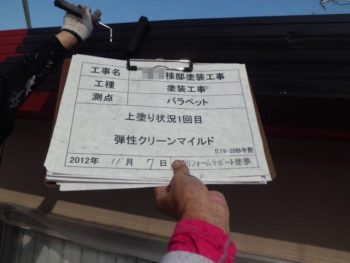 工事名 様邸塗装工事
工種 塗装工事
測点 パラペット
上塗り状況1回目
弾性クリーンマイルド
E19-20B半艶
2012年 11月 7日 リフォームサポート塗夢